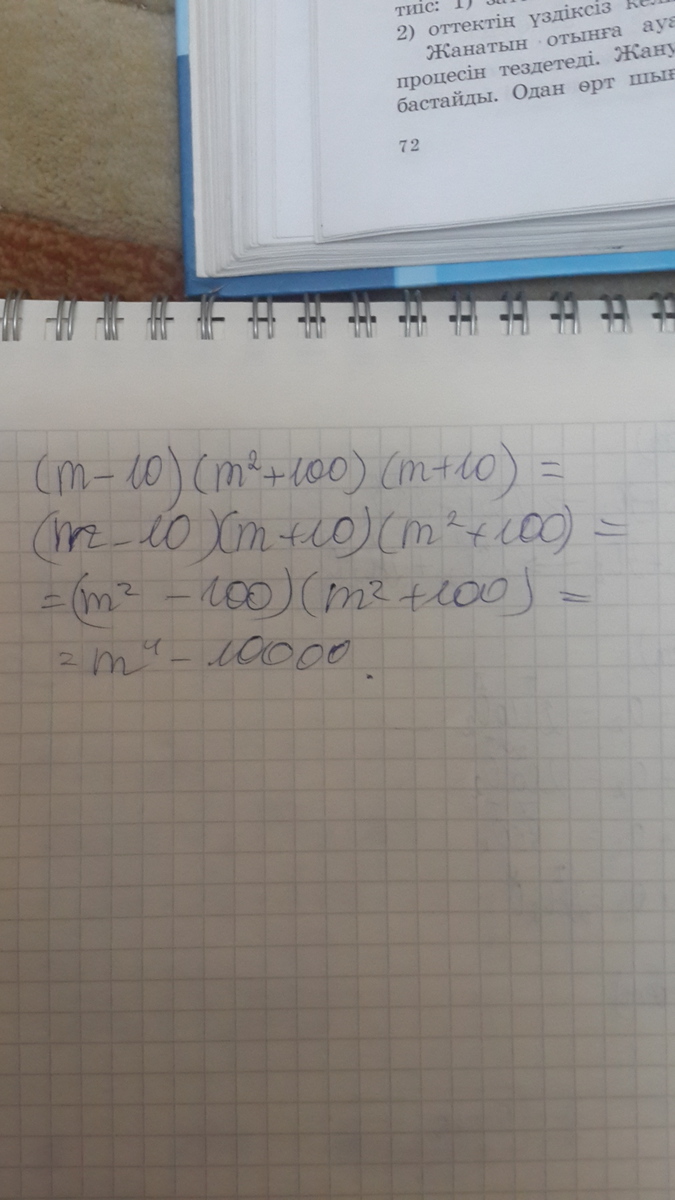 тиіс: 1)
2) оттектің үздіксіз
Жанатын отынға ауа
процесін тездетеді. Жану
бастайды. Одан өрт
72
(m-10)(m²+100)(m+10)=
(m-10)(m+10)(m²+100)=
=(m²-100)(m²+100)=
=m⁴-10000.